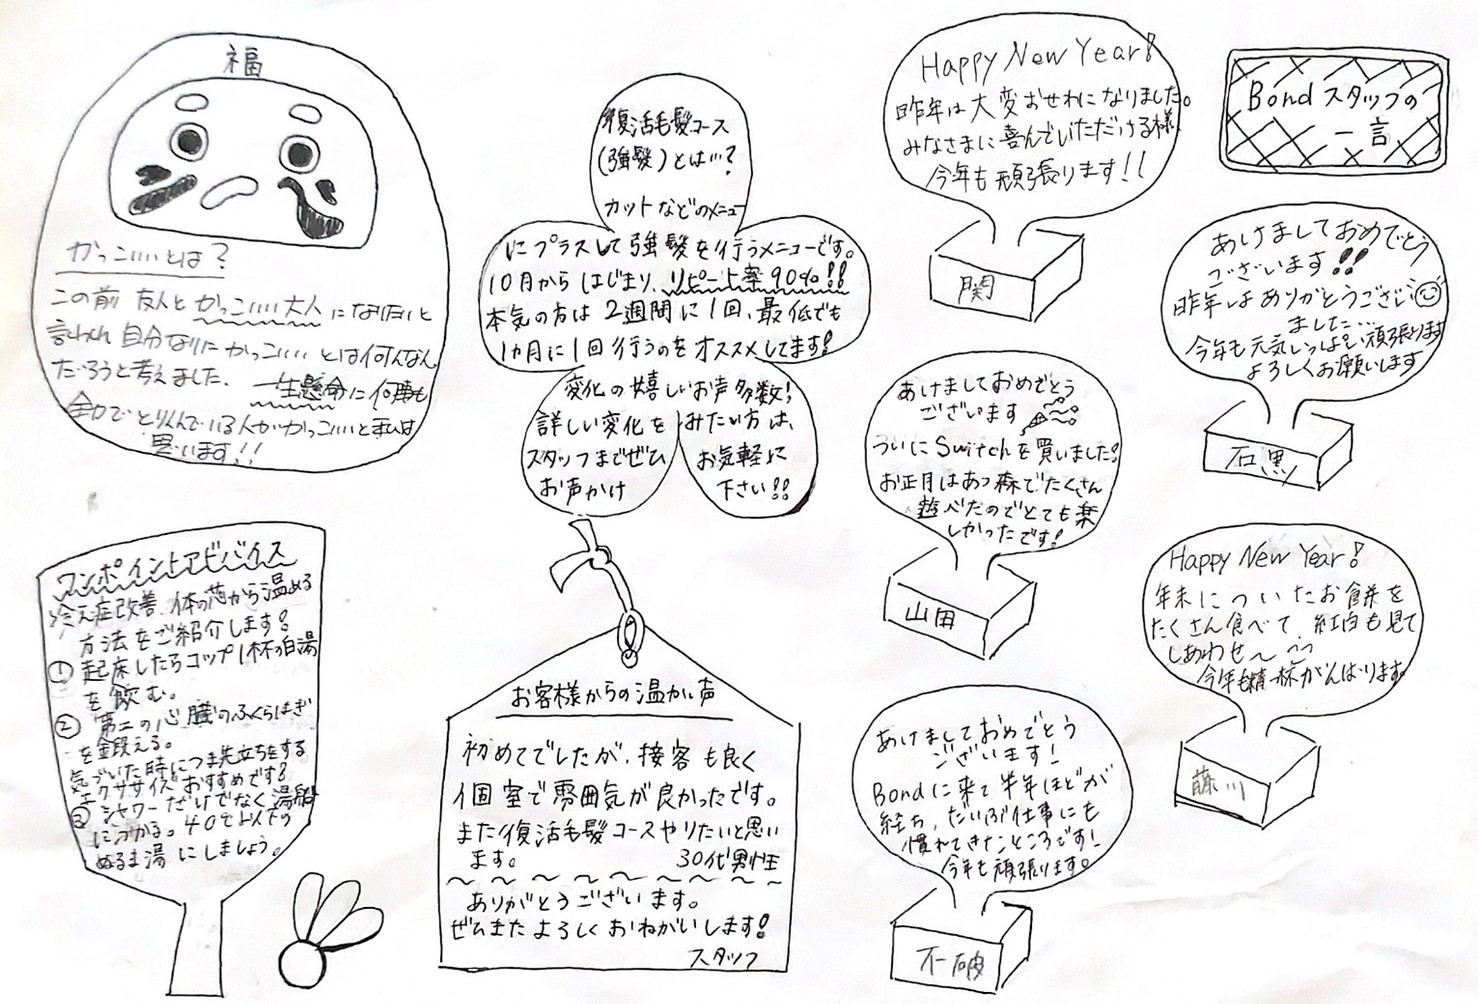 福
かっこいいとは?
この前 友人と かっこいい大人 になりたいと
言われ 自分なりに かっこいい とは何なん
だろうと考えました、一生懸命に何事も
全力で とりくんでいる人がかっこいいと私は
思います!!
復活毛髪コース
(強髪)とは…?
カットなどのメニュー
にプラスして強髪を行うメニューです。
10月からはじまり、リピート率90%!!
本気の方は2週間に1回、最低でも
1カ月に1回行うのをオススメしてます!
変化の嬉しいお声多数!
詳しい変化を
スタッフまでぜひ
お声かけ
みたい方は、
お気軽に
下さい!!
Bondスタッフの
一言
Happy New Year!
昨年は大変おせわになりました。
みなさまに喜んでいただける様
今年も頑張ります!!
関
あけましておめでとう
ございます!!
昨年はありがとうござい
ました…
今年も元気いっぱい頑張ります
よろしくお願いします
石黒
あけましておめでとう
ございます
ついにSwitchを買いました!
お正月はあつ森でたくさん
遊べたのでとても楽
しかったです!
山田
Happy New Year!
年末についたお餅を
たくさん食べて、紅白も見て
しあわせ〜
今年も精一杯がんばります。
藤川
あけましておめでとう
ございます!
Bondに来て半年ほどが
経ち、だいぶ仕事にも
慣れてきたところです!
今年も頑張ります。
不破
ワンポイントアドバイス
冷え症改善、体の芯から温める
方法をご紹介します!
① 起床したらコップ1杯の白湯
を飲む。
② 第二の心臓のふくらはぎ
を鍛える。
気づいた時につま先立ちをする
エクササイズおすすめです!
③ シャワーだけでなく湯船
につかる。40℃以下の
ぬるま湯にしましょう。
お客様からの温かい声
初めてでしたが、接客も良く
個室で雰囲気が良かったです。
また復活毛髪コースやりたいと思い
ます。 30代男性
ありがとうございます。
ぜひまたよろしくおねがいします!
スタッフ